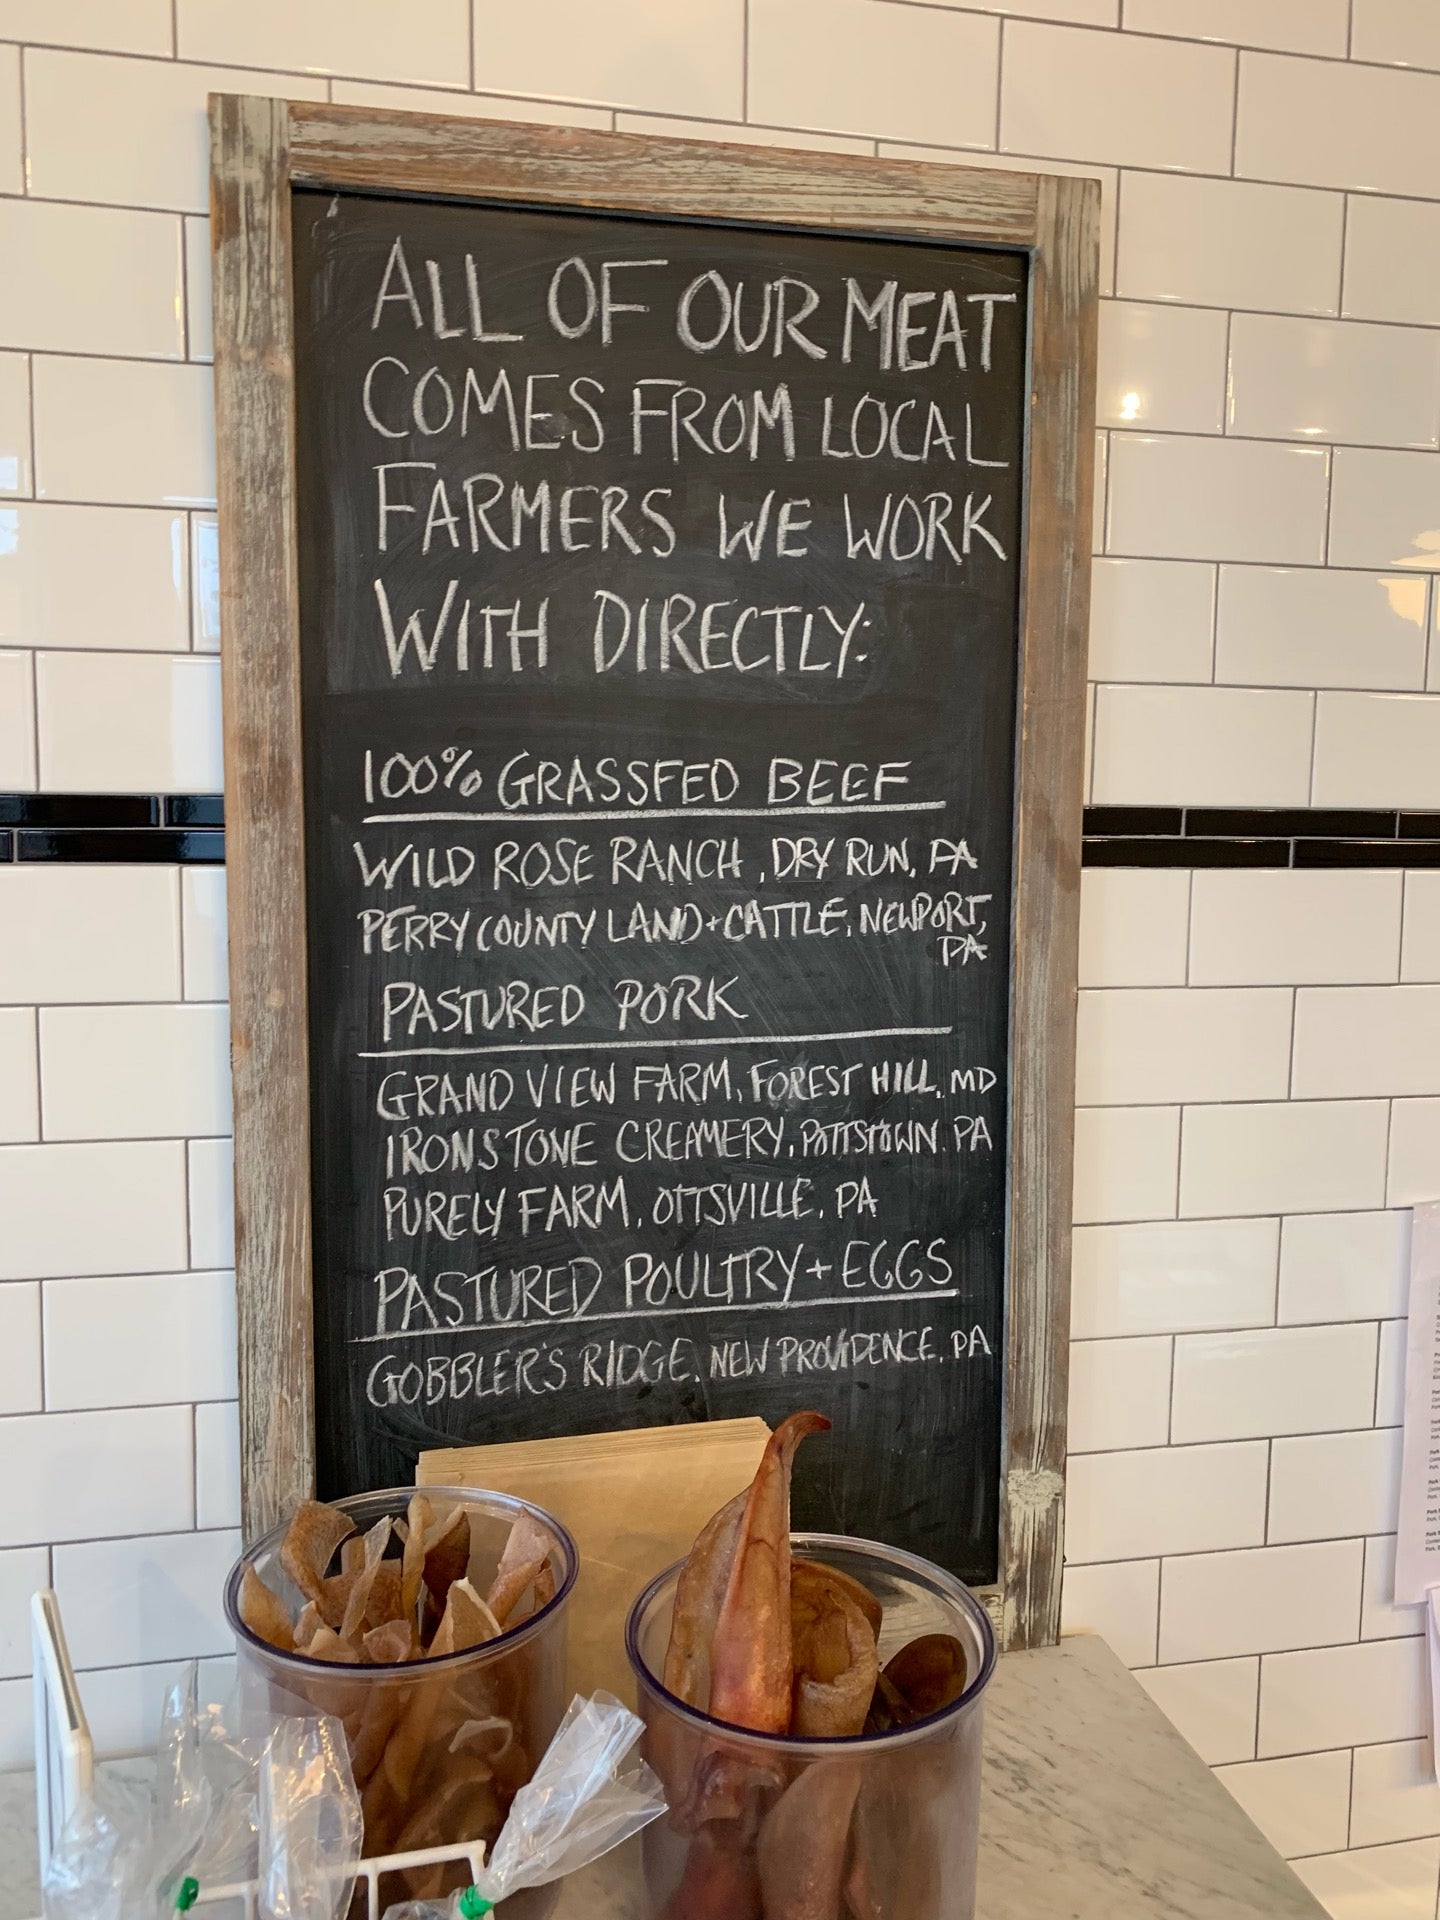 ALL OF OUR MEAT
COMES FROM LOCAL
FARMERS WE WORK
WITH DIRECTLY:
100% GRASSFED BEEF
WILD ROSE RANCH, DRY RUN, PA
PERRY COUNTY LAND+CATTLE, NEWPORT,
PA
PASTURED PORK
GRAND VIEW FARM, FOREST HILL, MD
IRONSTONE CREAMERY, POTTSTOWN, PA
PURELY FARM, OTTSVILLE, PA
PASTURED POULTRY + EGGS
GOBBLER'S RIDGE, NEW PROVIDENCE, PA